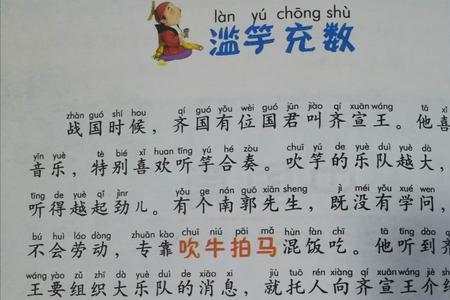 làn yú chōng shù
滥竽充数
zhàn guó shí hou qí guó yǒu wèi guó jūn jiào qí xuān wáng tā xǐ
战国时候，齐国有位国君叫齐宣王。他喜
yīn yuè tè bié xǐ huan tīng yú hé zòu chuī yú de yuè duì yuè dà
音乐，特别喜欢听竽合奏。吹竽的乐队越大，
tīng de yuè qǐ jìnr yǒu ge nán guō xiān sheng jì méi yǒu xué wen
听得越起劲儿。有个南郭先生，既没有学问，
bú huì láo dòng zhuān kào chuī niú pāi mǎ hùn fàn chī tā tīng dào qí
不会劳动，专靠吹牛拍马混饭吃。他听到齐
wáng yào zǔ zhī dà yuè duì de xiāo xi jiù tuō rén xiàng qí xuān wáng jiè
王要组织大乐队的消息，就托人向齐宣王介